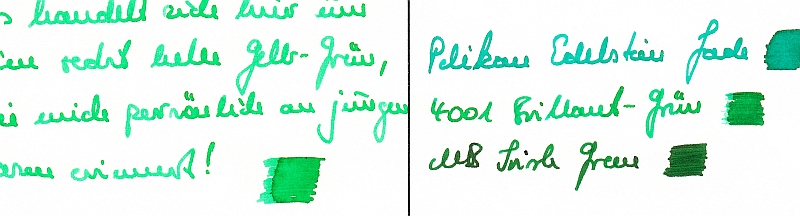 s handelt sich hier um
ine recht helle Gelb-Grün,
mich persönlich an jungen
erinnert!
Pelikan Edelstein Jade
4001 Brillant-Grün
MB Irish Green